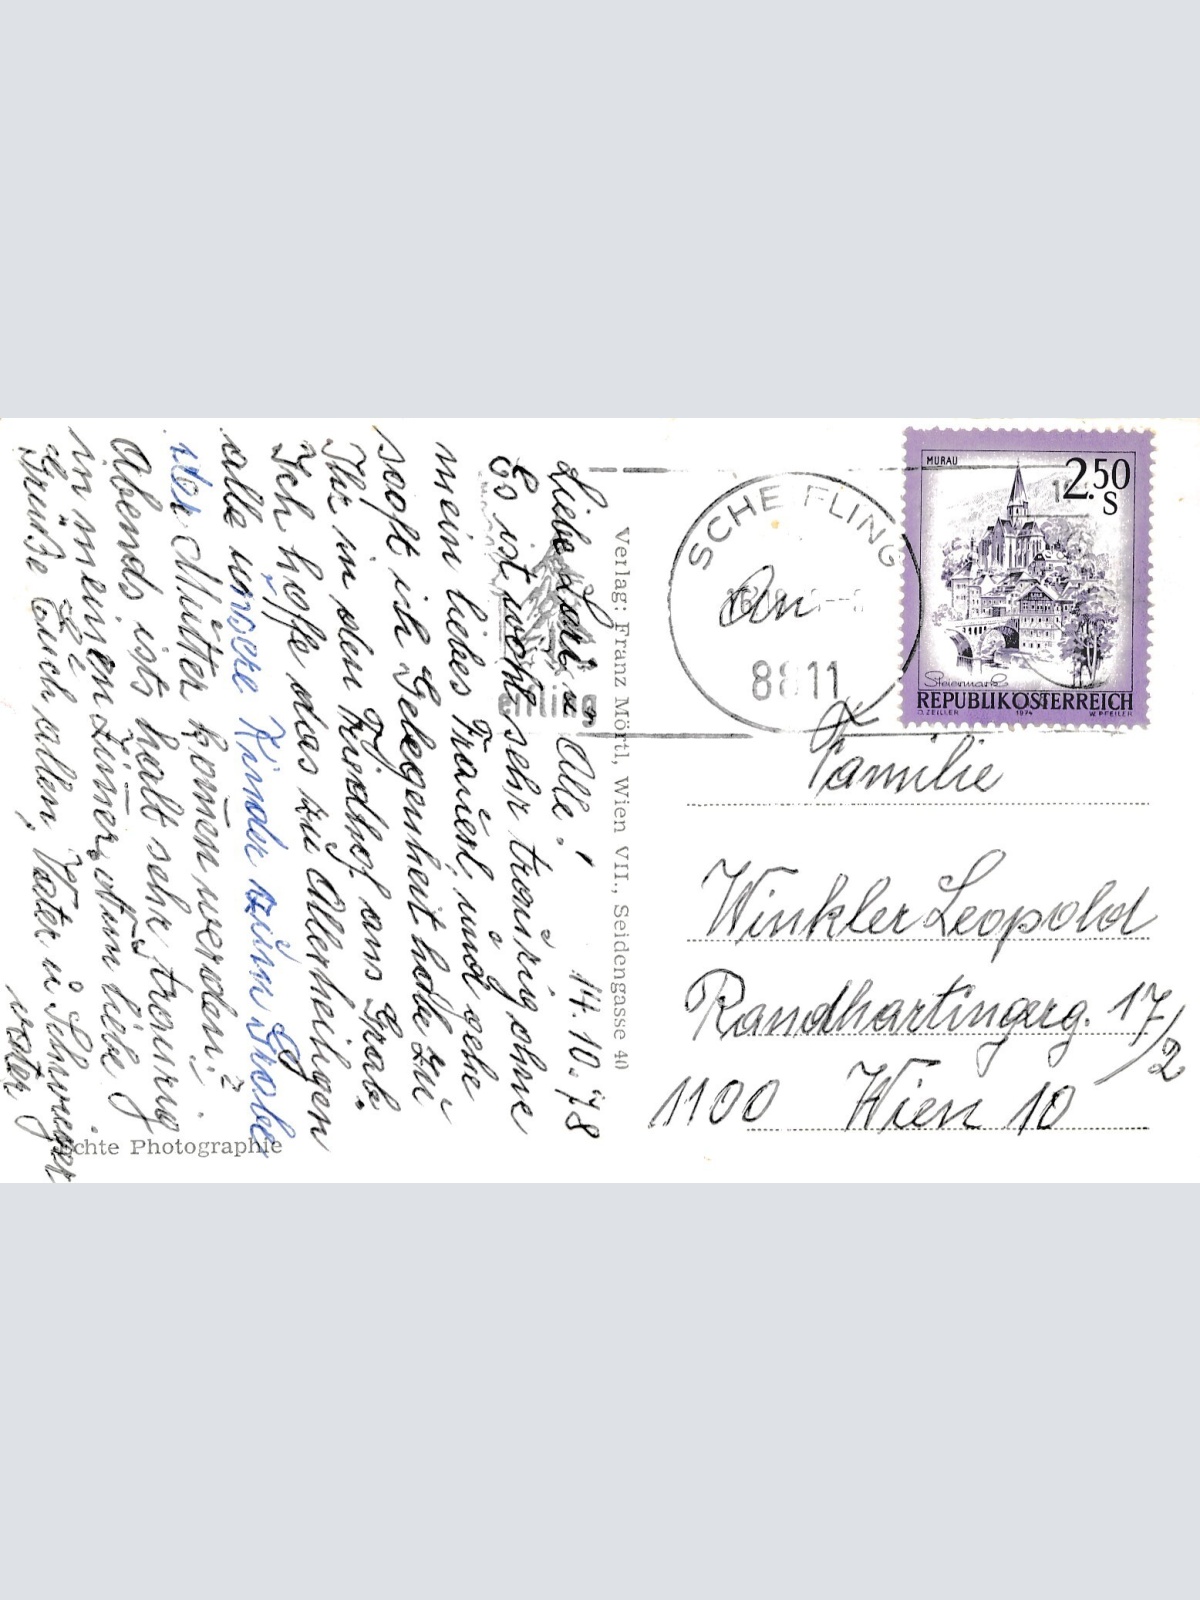 Liebe Loli u. Alle! 14.10.78
Es ist wohl sehr traurig ohne
mein liebes Frauerl, und gehe
sooft ich Gelegenheit habe zu
Ihr in den Friedhof ans Grab.
Ich hoffe das zu Allerheiligen
alle unsere Kinder zum Grabe
der Mutter kom̄en werden!
Abends ists halt sehr traurig
in meinem Zim̄er. Nun liebe
Grüße Euch allen, Vater u Schwieger
vater
Echte Photographie
Verlag: Franz Mörtl, Wien VII., Seidengasse 40
SCHEIFLING
8811
MURAU
2.50
S
Steiermark
REPUBLIK ÖSTERREICH
O. ZEILLER 1974 W. PFEILER
An
Familie
Winkler Leopold
Randhartingerg. 17/2
1100 Wien 10